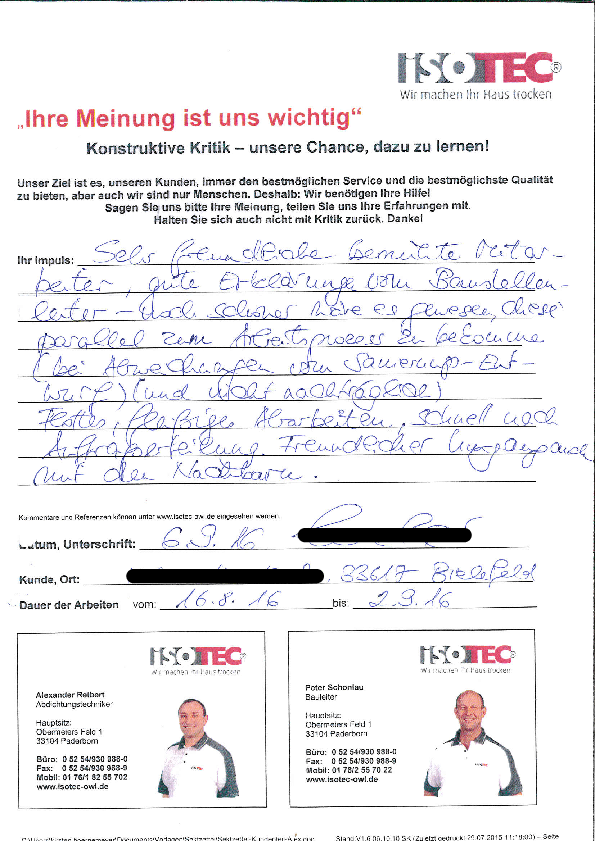 ISOTEC®
Wir machen Ihr Haus trocken
„Ihre Meinung ist uns wichtig“
Konstruktive Kritik – unsere Chance, dazu zu lernen!
Unser Ziel ist es, unseren Kunden, immer den bestmöglichen Service und die bestmöglichste Qualität
zu bieten, aber auch wir sind nur Menschen. Deshalb: Wir benötigen Ihre Hilfe!
Sagen Sie uns bitte Ihre Meinung, teilen Sie uns Ihre Erfahrungen mit.
Halten Sie sich auch nicht mit Kritik zurück. Danke!
Ihr Impuls: Sehr freundliche bemühte Mitar-
beiter, gute Erklärunge vom Baustellen-
leiter – noch schöner wäre es gewesen, diese
parallel zum Arbeitsprozess zu bekomme
(bei Abweichungen vom Sanierungs-Ent-
wurf) (und nicht nachträglich)
Flottes, fleißiges Abarbeiten, schnell nach
Auftragserteilung. Freundlicher Umgang auch
mit den Nachbarn.
Kommentare und Referenzen können unter www.isotec-owl.de eingesehen werden.
Datum, Unterschrift: 6.9.16
Kunde, Ort: , 33617 Bielefeld
Dauer der Arbeiten vom: 16.8.16 bis: 2.9.16
ISOTEC®
Wir machen Ihr Haus trocken
Alexander Reibert
Abdichtungstechniker
Hauptsitz:
Obermeiers Feld 1
33104 Paderborn
Büro: 0 52 54/930 988-0
Fax: 0 52 54/930 988-9
Mobil: 01 76/1 82 55 702
www.isotec-owl.de
ISOTEC®
Wir machen Ihr Haus trocken
Peter Schonlau
Bauleiter
Hauptsitz:
Obermeiers Feld 1
33104 Paderborn
Büro: 0 52 54/930 988-0
Fax: 0 52 54/930 988-9
Mobil: 01 78/2 55 70 22
www.isotec-owl.de
Stand V1.6 06.10.10 SK (Zuletzt gedruckt 29.07.2015 11:18:00) – Seite